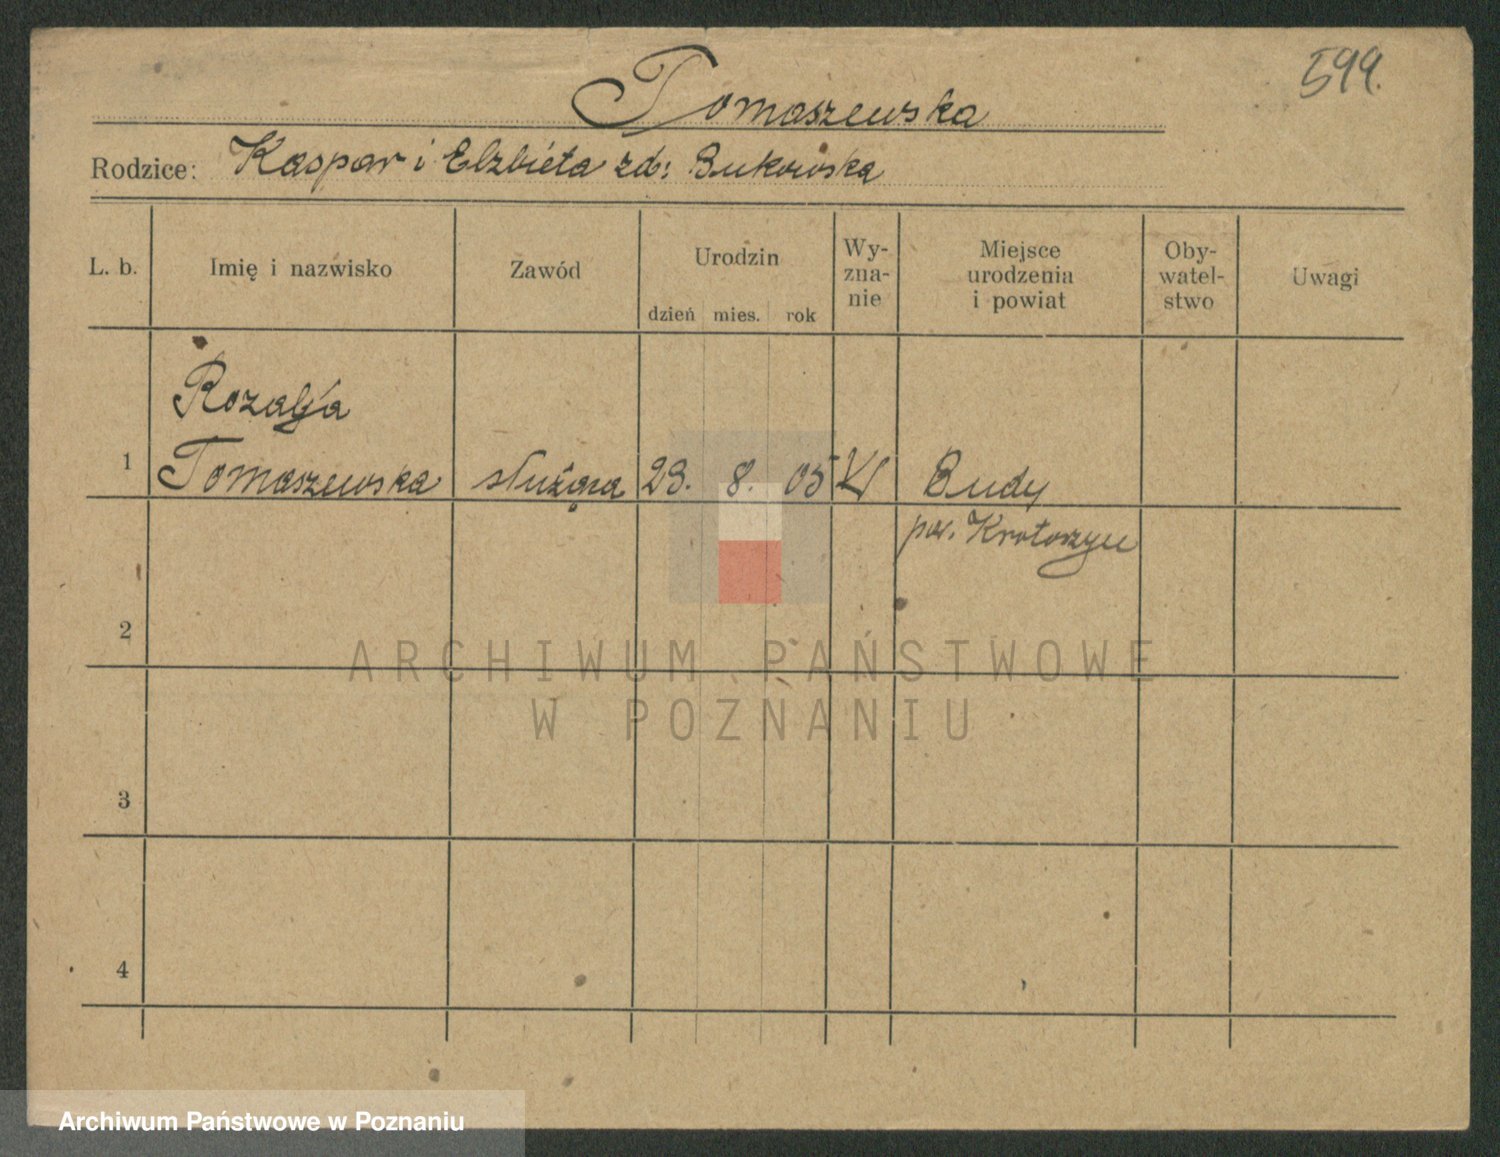 599.
Tomaszewska
Rodzice: Kaspar i Elzbieta zd: Bukowska
L. b. Imię i nazwisko Zawód Urodzin dzień mies. rok Wy-zna-nie Miejsce urodzenia i powiat Oby-watel-stwo Uwagi
Rozalja
1 Tomaszewska służąca 23. 8. 05 Budy
pow. Krotoszyn
2
ARCHIWUM PAŃSTWOWE
W POZNANIU
3
4
Archiwum Państwowe w Poznaniu